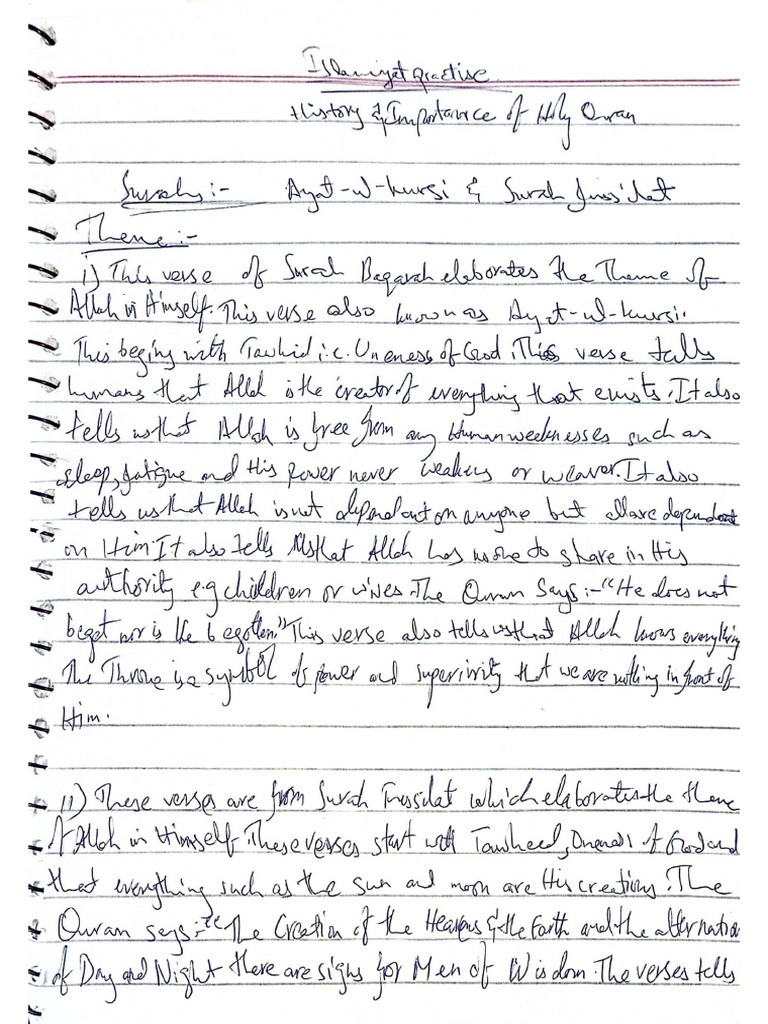 Islamiyat practise
History & Importance of Holy Quran
Surahs:- Ayat-ul-kursi & Surah fussilat
Theme:-
i) This verse of Surah Baqarah elaborates the Theme of
Allah in Himself. This verse also known as Ayat-ul-kursi.
This begins with Tawhid i.e. Oneness of God. This verse tells
humans that Allah is the creator of everything that exists. It also
tells us that Allah is free from any Human weeknesses such as
sleep, fatigue and His power never weakens or It also
tells us that Allah is not dependant on anyone but all are dependant
on Him It also tells us that Allah has none to share in His
authority e.g children or wives. The Quran Says:- "He does not
beget nor is He begotten." This verse also tells us that Allah knows everything
The Throne is a symbol of power and superivity that we are nothing in front of
Him.
ii) These verses are from Surah Fussilat which elaborates the theme
of Allah in Himself. These verses start with Tawheed, Oneness of God and
that everything such as the sun and moon are His creations. The
Quran says:- "The Creation of the Heavens & the Earth and the alternation
of Day and Night there are signs for Men of Wisdom. The verses tells